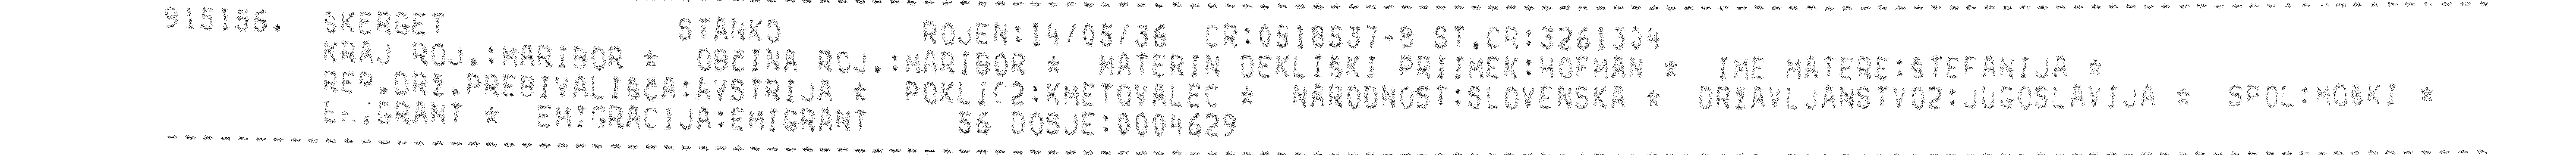 915156. ŠKERGET STANKO ROJEN:14/05/36 CR:0518537-8 ST.CR:3261334
KRAJ ROJ.:MARIBOR * OBČINA ROJ.:MARIBOR * MATERIN DEKLIŠKI PRIIMEK:HOFMAN * IME MATERE:ŠTEFANIJA *
REP.DRŽ.PREBIVALIŠČA:AVSTRIJA * POKLIC2:KMETOVALEC * NARODNOST:SLOVENSKA * DRŽAVLJANSTVO2:JUGOSLAVIJA * SPOL:MOŠKI *
EMIGRANT * EMIGRACIJA:EMIGRANT 56 DOSJE:0004629